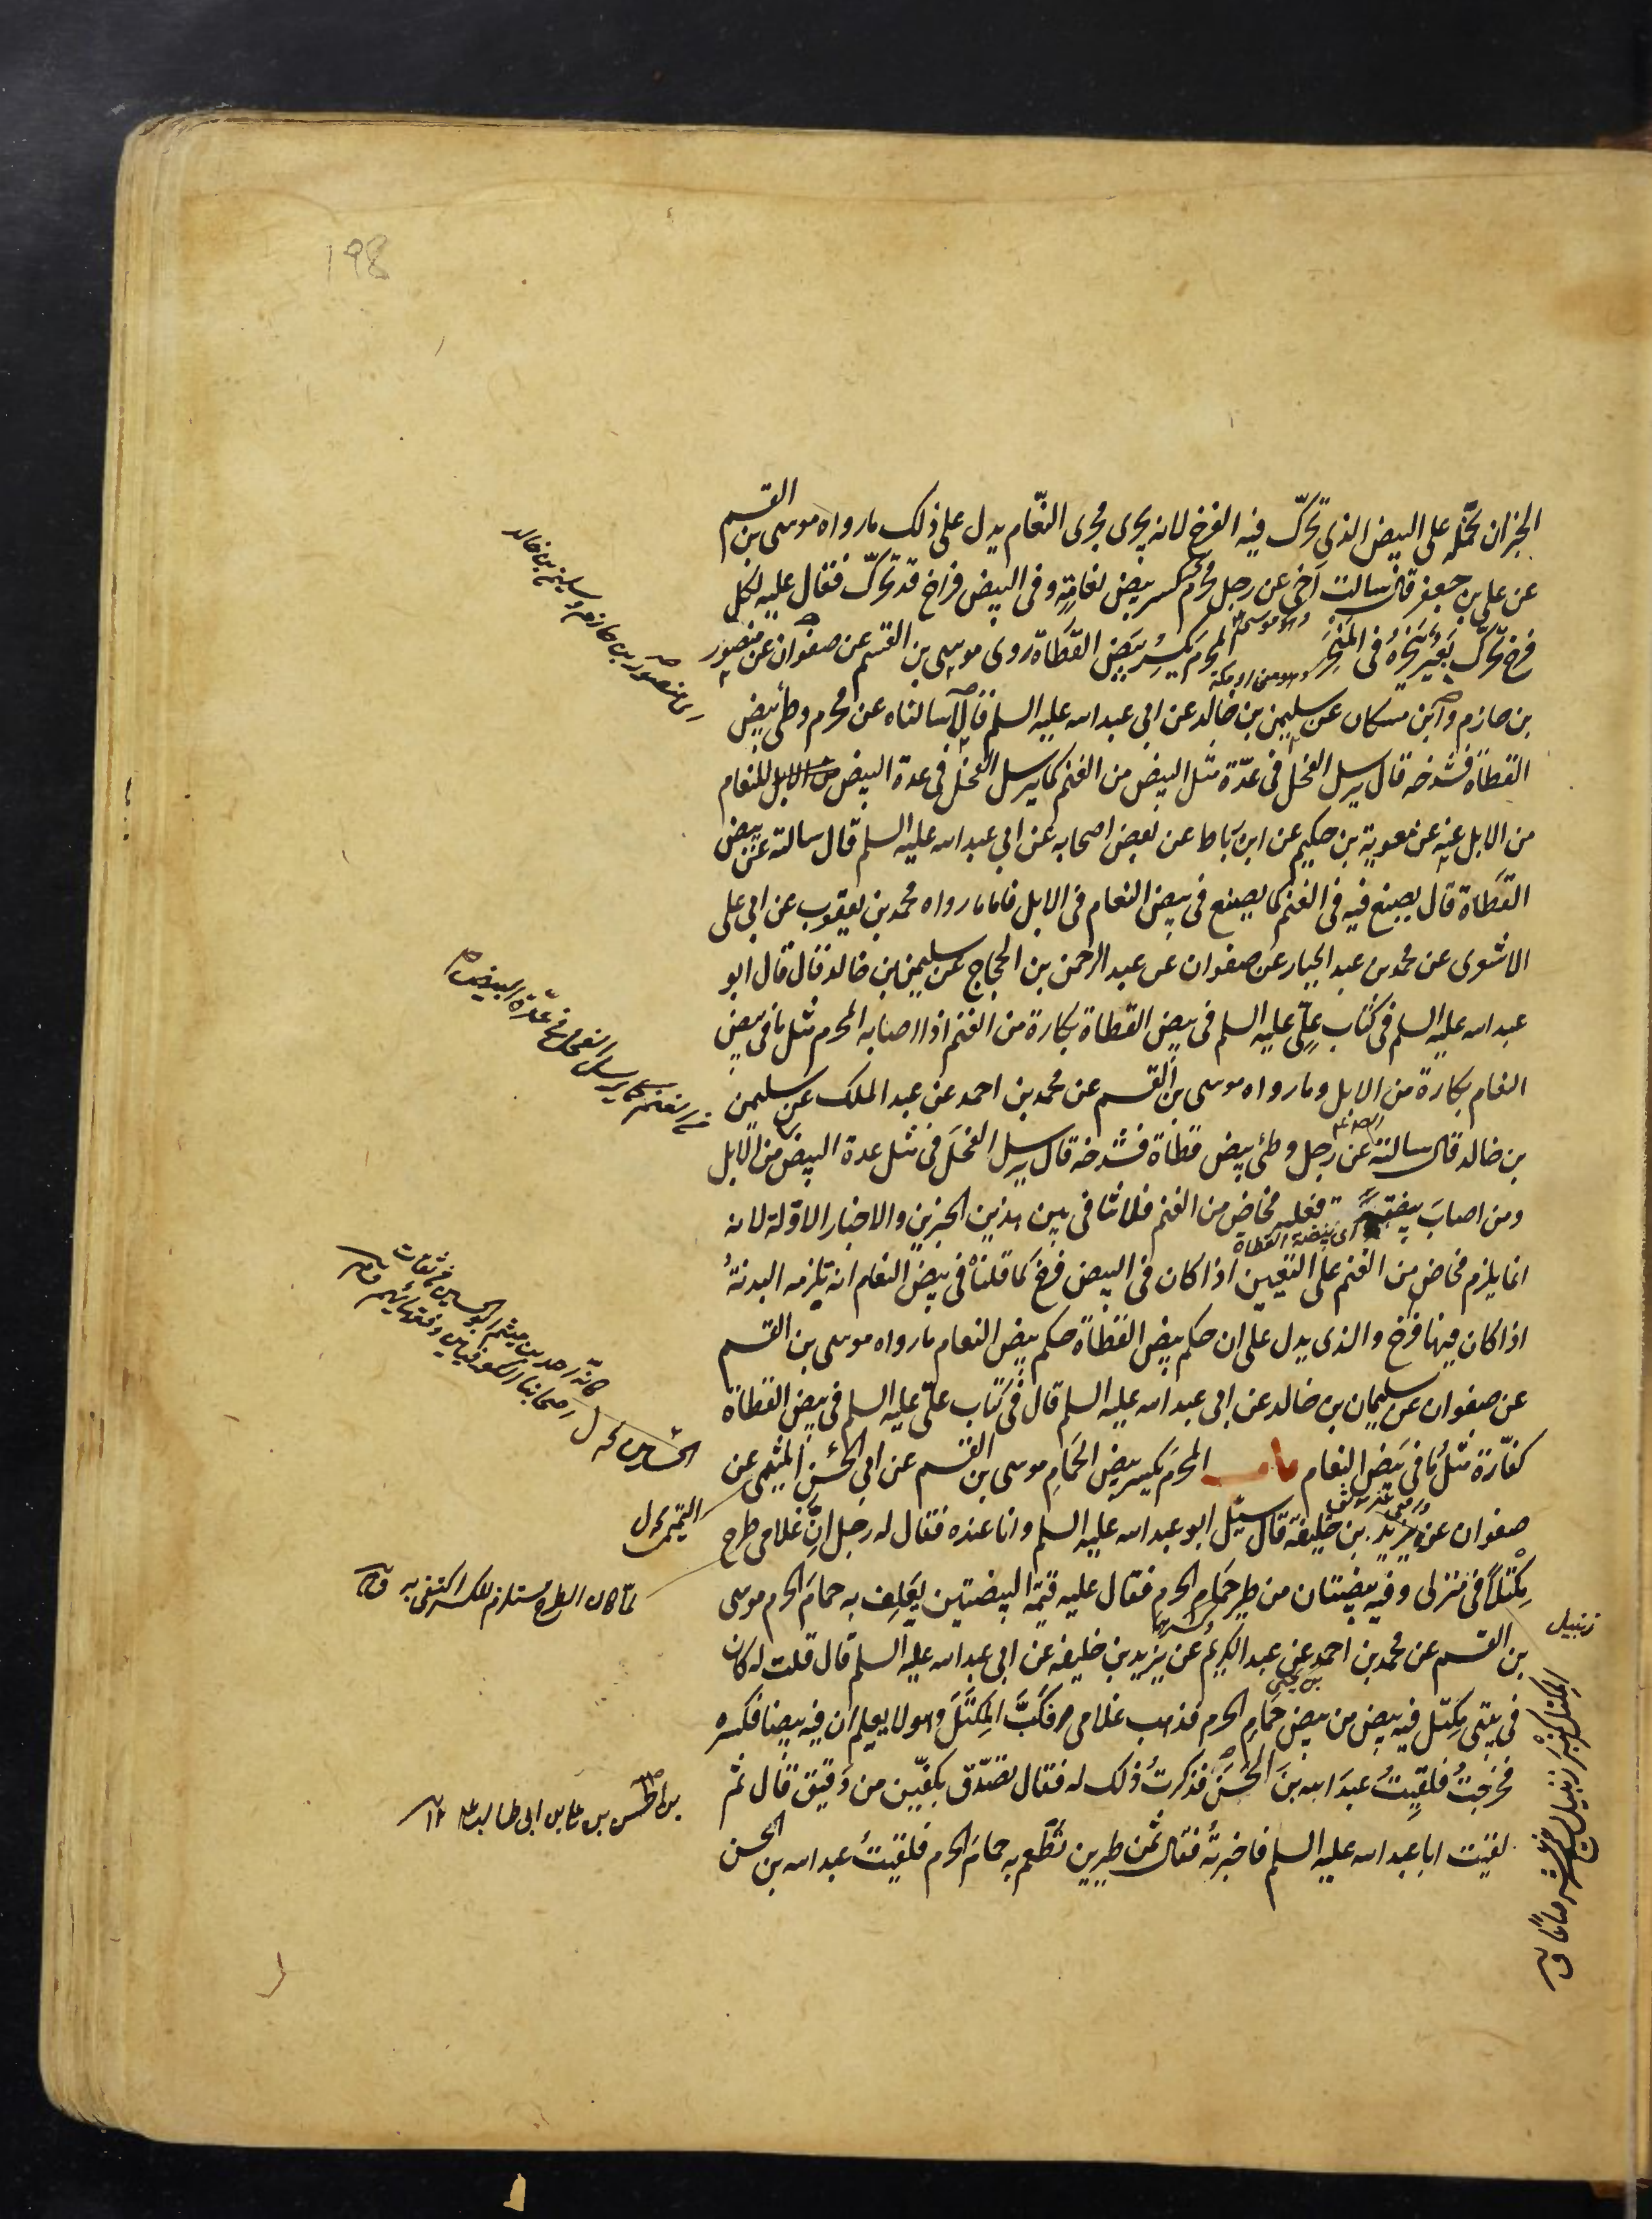 198
الخبران نحمله على البيض الذى تحرّك فيه الفرخ لانه يجرى مجرى النعّام يدل على ذلك ما رواه موسى بن القسم
عن على بن جعفر قال سالت اخى عن رجل محرم كسر بيض نعامة وفى البيض فراخ قد تحرّك فقال عليه لكل
فرخ تحرّك بعير ينحره فى المنحر المحرم يكسر بيض القطاة روى موسى بن القسم عن صفوان عن منصور
بن حازم وابن مسكان عن سليمن بن خالد عن ابى عبد الله عليه السلم قال سالناه عن محرم وطئ بيض
القطاة فشدخه قال يرسل الفحل فى عدّة مثل البيض من الغنم كما يرسل الفحل فى عدة البيض من الابل للنعام
من الابل عنه عن معوية بن حكيم عن ابن رباط عن بعض اصحابه عن ابى عبد الله عليه السلم قال سالته عن بيض
القطاة قال يصنع فيه فى الغنم كما يصنع فى بيض النعام فى الابل فاما ما رواه محمد بن يعقوب عن ابى على
الاشعرى عن محمد بن عبد الجبار عن صفوان عن عبد الرحمن بن الحجاج عن سليمن بن خالد قال قال ابو
عبد الله عليه السلم فى كتاب علىّ عليه السلم فى بيض القطاة بكارة من الغنم اذا اصابه المحرم مثل ما فى بيض
النعام بكارة من الابل وما رواه موسى بن القسم عن محمد بن احمد عن عبد الملك عن سليمن
بن خالد قال سالته عن رجل وطئ بيض قطاة فشدخه قال يرسل الفحل فى مثل عدة البيض من الابل
ومن اصاب بيضة فعليه مخاض من الغنم فلا تنافى بين هذين الخبرين والاخبار الاوّلة لانه
اى بيضة القطاة
انما يلزم مخاض من الغنم على التعيين اذا كان فى البيض فرخ كما قلناه فى بيض النعام انه تلزمه البدنة
اذا كان فيها فرخ والذى يدل على ان حكم بيض القطاة حكم بيض النعام ما رواه موسى بن القسم
عن صفوان عن سليمان بن خالد عن ابى عبد الله عليه السلم قال فى كتاب علىّ عليه السلم فى بيض القطاة
كفّارة مثل ما فى بيض النعام باب المحرم يكسر بيض الحمام موسى بن القسم عن ابى الحسن الميثمى عن
صفوان عن يزيد بن خليفة قال سئل ابو عبد الله عليه السلم وانا عنده فقال له رجل انّ غلامى طرح
مكتلا فى منزلى وفيه بيضتان من طير حمام الحرم فقال عليه قيمة البيضتين يعلف به حمام الحرم موسى
بن القسم عن محمد بن احمد عن عبد الكريم عن يزيد بن خليفه عن ابى عبد الله عليه السلم قال قلت له كان
فى بيتى مكتل فيه بيض من بيض حمام الحرم فذهب غلامى فكبّ المكتل وهو لا يعلم ان فيه بيضا فكسره
فخرجت فلقيت عبد الله بن الحسن فذكرت ذلك له فقال تصدّق بكفّين من دقيق قال ثم
لقيت ابا عبد الله عليه السلم فاخبرته فقال ثمن طيرين تطعم به حمام الحرم فلقيت عبد الله بن الحسن
اى منصور بن حازم وسليمن بن خالد
من الغنم كما يرسل الفحل فى عدّة البيض
كانّه احمد بن ميثم ابو الحسين من ثقات
اصحابنا الكوفيين وفقهائهم
التيمى خ ل
لما كان الطرح مستلزم للكسر اكتفى به
بن الحسن بن على بن ابى طالب
زنبيل